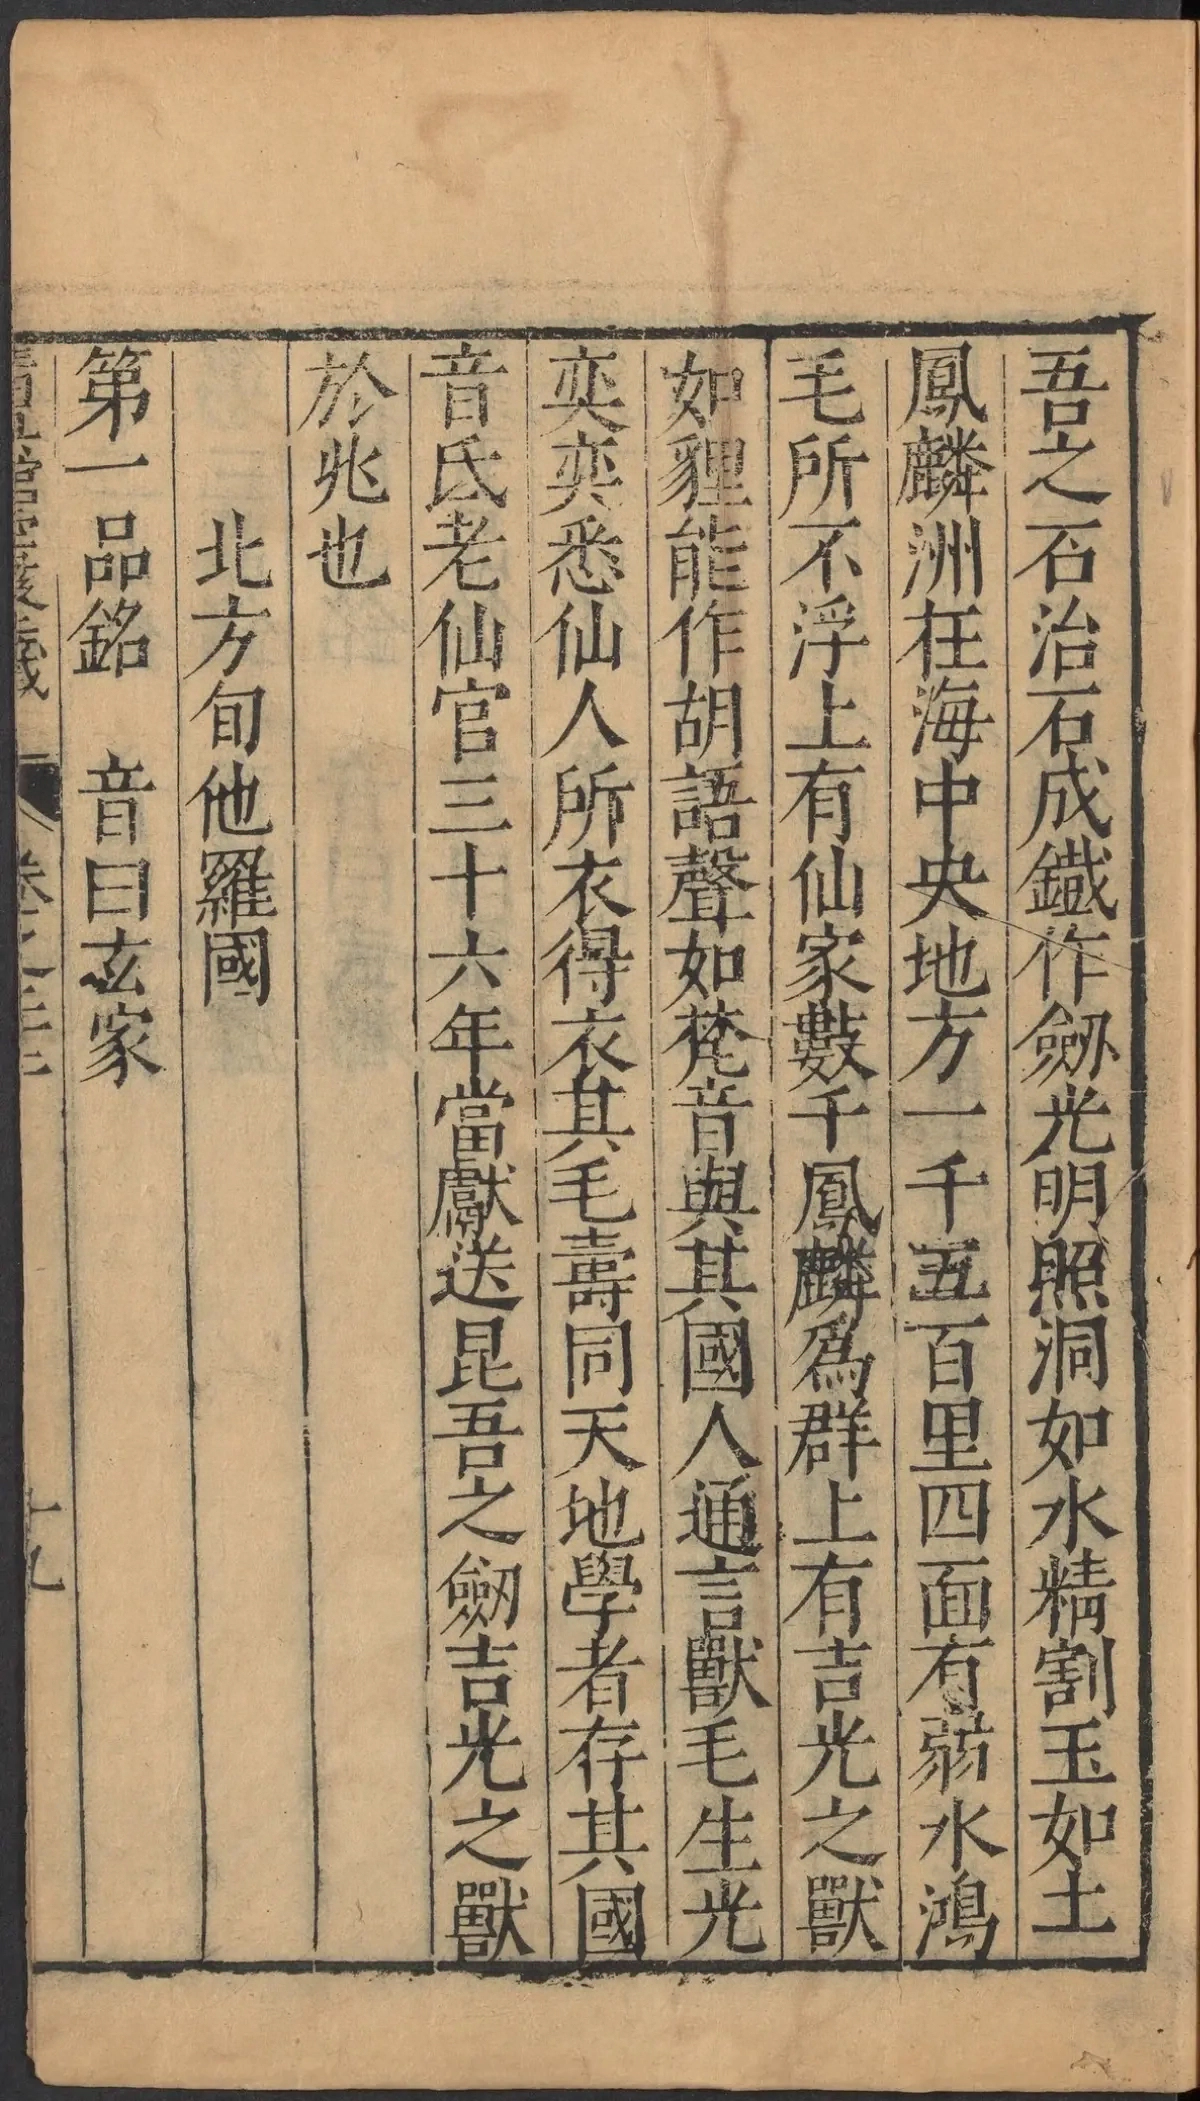 吾之石治石成鐵作劒光明照洞如水精割玉如土
鳳麟洲在海中央地方一千五百里四面有弱水鴻
毛所不浮上有仙家數千鳳麟為群上有吉光之獸
如貍能作胡語聲如梵音與其國人通言獸毛生光
奕奕悉仙人所衣得衣其毛壽同天地學者存其國
音氏老仙官三十六年當獻送昆吾之劒吉光之獸
於兆也
北方旬他羅國
第一品銘　音曰玄家
卷之三十二
十九